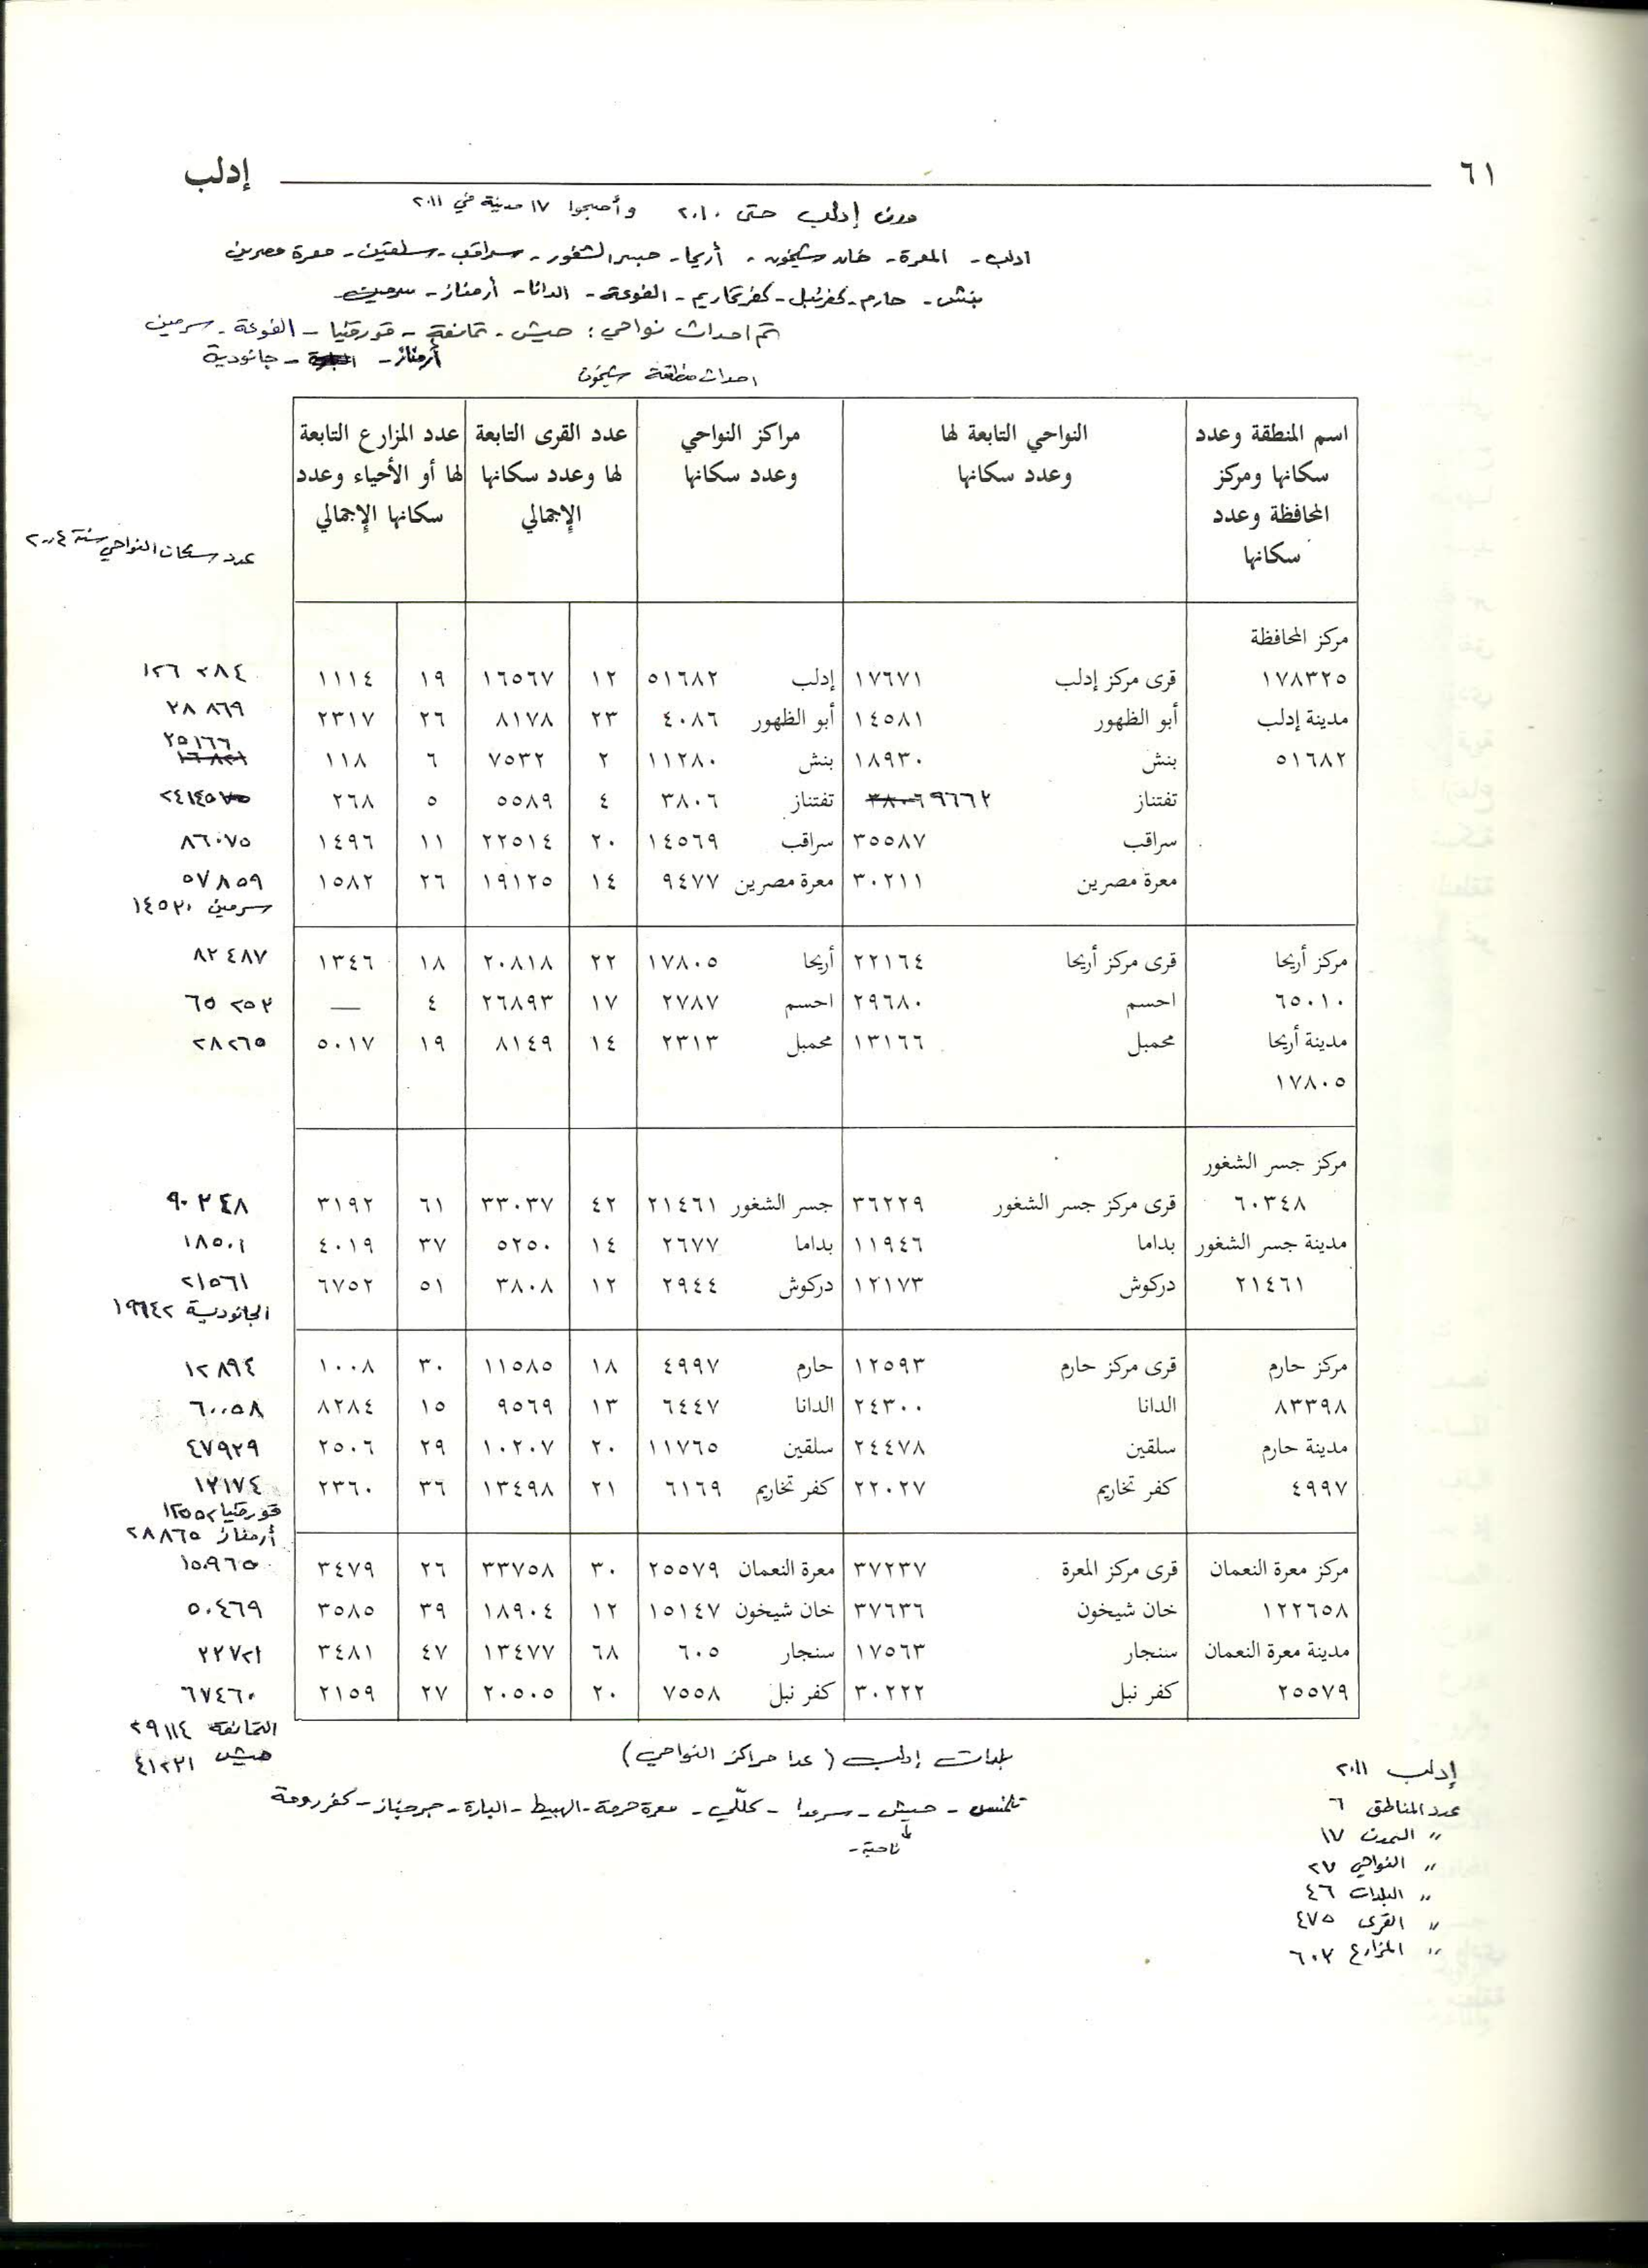 ٦١ إدلب
مدن إدلب حتى ٢٠١٠ وأصبحوا ١٧ مدينة في ٢٠١١
ادلب - المعرة - خان شيخون - أريحا - جسر الشغور - سراقب - سلقين - معرة مصرين
بنش - حارم - كفرنبل - كفرتخاريم - الفوعة - الدانا - أرمناز - سرمين
تم احداث نواحي : حيش - تمانعة - قورقنيا - الفوعة - سرمين
أرمناز - جانودية
احداث منطقة شيخون
اسم المنطقة وعدد سكانها ومركز المحافظة وعدد سكانها
النواحي التابعة لها وعدد سكانها
مراكز النواحي وعدد سكانها
عدد القرى التابعة لها وعدد سكانها الإجمالي
عدد المزارع التابعة لها أو الأحياء وعدد سكانها الإجمالي
عدد سكان النواحي سنة ٢٠٠٤
مركز المحافظة
١٧٨٣٢٥ قرى مركز إدلب ١٧٦٧١ إدلب ٥١٦٨٢ ١٢ ١٦٥٦٧ ١٩ ١١١٤ ١٢٦٢٨٤
مدينة إدلب أبو الظهور ١٤٥٨١ أبو الظهور ٤٠٨٦ ٢٣ ٨١٧٨ ٢٦ ٢٣١٧ ٣٨٨٦٩
٥١٦٨٢ بنش ١٨٩٣٠ بنش ١١٢٨٠ ٢ ٧٥٣٢ ٦ ١١٨ ٢٥١٦٦
تفتناز ٩٦٦٢ ٣٨٠٦ تفتناز ٣٨٠٦ ٤ ٥٥٨٩ ٥ ٢٦٨
سراقب ٣٥٥٨٧ سراقب ١٤٥٦٩ ٢٠ ٢٢٥١٤ ١١ ١٤٩٦ ٨٦٠٧٥
معرة مصرين ٣٠٢١١ معرة مصرين ٩٤٧٧ ١٤ ١٩١٢٥ ٢٦ ١٥٨٢ ٥٧٨٥٩
سرمين ١٤٥٣٠
مركز أريحا قرى مركز أريحا ٢٢١٦٤ أريحا ١٧٨٠٥ ٢٢ ٢٠٨١٨ ١٨ ١٣٤٦ ٨٢٤٨٧
٦٥٠١٠ احسم ٢٩٦٨٠ احسم ٢٧٨٧ ١٧ ٢٦٨٩٣ ٤ — ٦٥٢٥٣
مدينة أريحا محمبل ١٣١٦٦ محمبل ٢٣١٣ ١٤ ٨١٤٩ ١٩ ٥٠١٧ ٢٨٢٦٥
١٧٨٠٥
مركز جسر الشغور
٦٠٣٤٨ قرى مركز جسر الشغور ٣٦٢٢٩ جسر الشغور ٢١٤٦١ ٤٢ ٣٣٠٣٧ ٦١ ٣١٩٢ ٩٠٣٤٨
مدينة جسر الشغور بداما ١١٩٤٦ بداما ٢٦٧٧ ١٤ ٥٢٥٠ ٣٧ ٤٠١٩ ١٨٥٠١
٢١٤٦١ دركوش ١٢١٧٣ دركوش ٢٩٤٤ ١٢ ٣٨٠٨ ٥١ ٦٧٥٢ ٢١٥٦١
الجانودية ١٩٦٤٢
مركز حارم قرى مركز حارم ١٢٥٩٣ حارم ٤٩٩٧ ١٨ ١١٥٨٥ ٣٠ ١٠٠٨ ١٢٨٩٤
٨٣٣٩٨ الدانا ٢٤٣٠٠ الدانا ٦٤٤٧ ١٣ ٩٥٦٩ ١٥ ٨٢٨٤ ٦٠٠٥٨
مدينة حارم سلقين ٢٤٤٧٨ سلقين ١١٧٦٥ ٢٠ ١٠٢٠٧ ٢٩ ٢٥٠٦ ٤٧٩٣٩
٤٩٩٧ كفر تخاريم ٢٢٠٢٧ كفر تخاريم ٦١٦٩ ٢١ ١٣٤٩٨ ٣٦ ٢٣٦٠ ١٣١٧٤
قورقنيا ١٣٥٥٢
أرمناز ٢٨٨٦٥
مركز معرة النعمان قرى مركز المعرة ٣٧٢٣٧ معرة النعمان ٢٥٥٧٩ ٣٠ ٣٣٧٥٨ ٢٦ ٣٤٧٩ ١٥٠٩٦٥
١٢٢٦٥٨ خان شيخون ٣٧٦٣٦ خان شيخون ١٥١٤٧ ١٢ ١٨٩٠٤ ٣٩ ٣٥٨٥ ٥٠٤٦٩
مدينة معرة النعمان سنجار ١٧٥٦٣ سنجار ٦٠٥ ٦٨ ١٣٤٧٧ ٤٧ ٣٤٨١ ٣٣٧٢١
٢٥٥٧٩ كفر نبل ٣٠٢٢٢ كفر نبل ٧٥٥٨ ٢٠ ٢٠٥٠٥ ٢٧ ٢١٥٩ ٦٧٤٦٠
التمانعة ٢٩١١٤
حيش ٤١٢٣١
بلدات إدلب ( عدا مراكز النواحي )
تلمنس - حيش - سرمدا - كللّي - معرة حرمة - الهبيط - البارة - جرجناز - كفررومة
ناحية -
إدلب ٢٠١١
عدد المناطق ٦
" المدن ١٧
" النواحي ٢٧
" البلدات ٤٦
" القرى ٤٧٥
" المزارع ٦٠٣